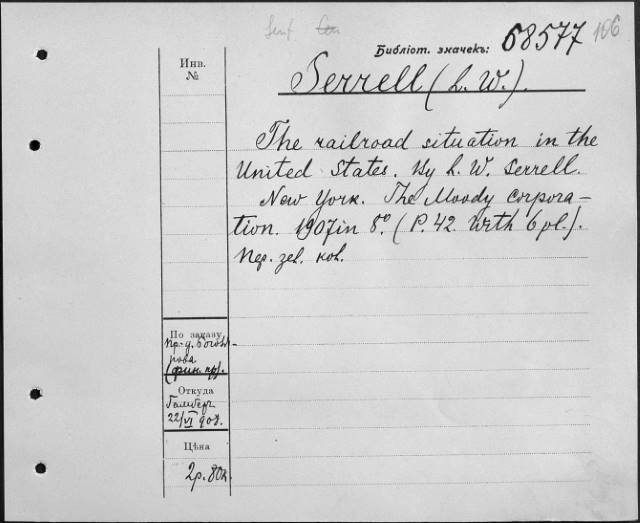 Библіот. значекъ: 68577 106
Инв.
№
Serrell (L. W.).
The railroad situation in the
United States. By L. W. Serrell.
New York. The Moody Corpora-
tion. 1907 in 8º. (P. 42. With 6 pl.).
По заказу
(фин. пр).
Откуда
22/VI 907.
Цѣна
2р. 80к.